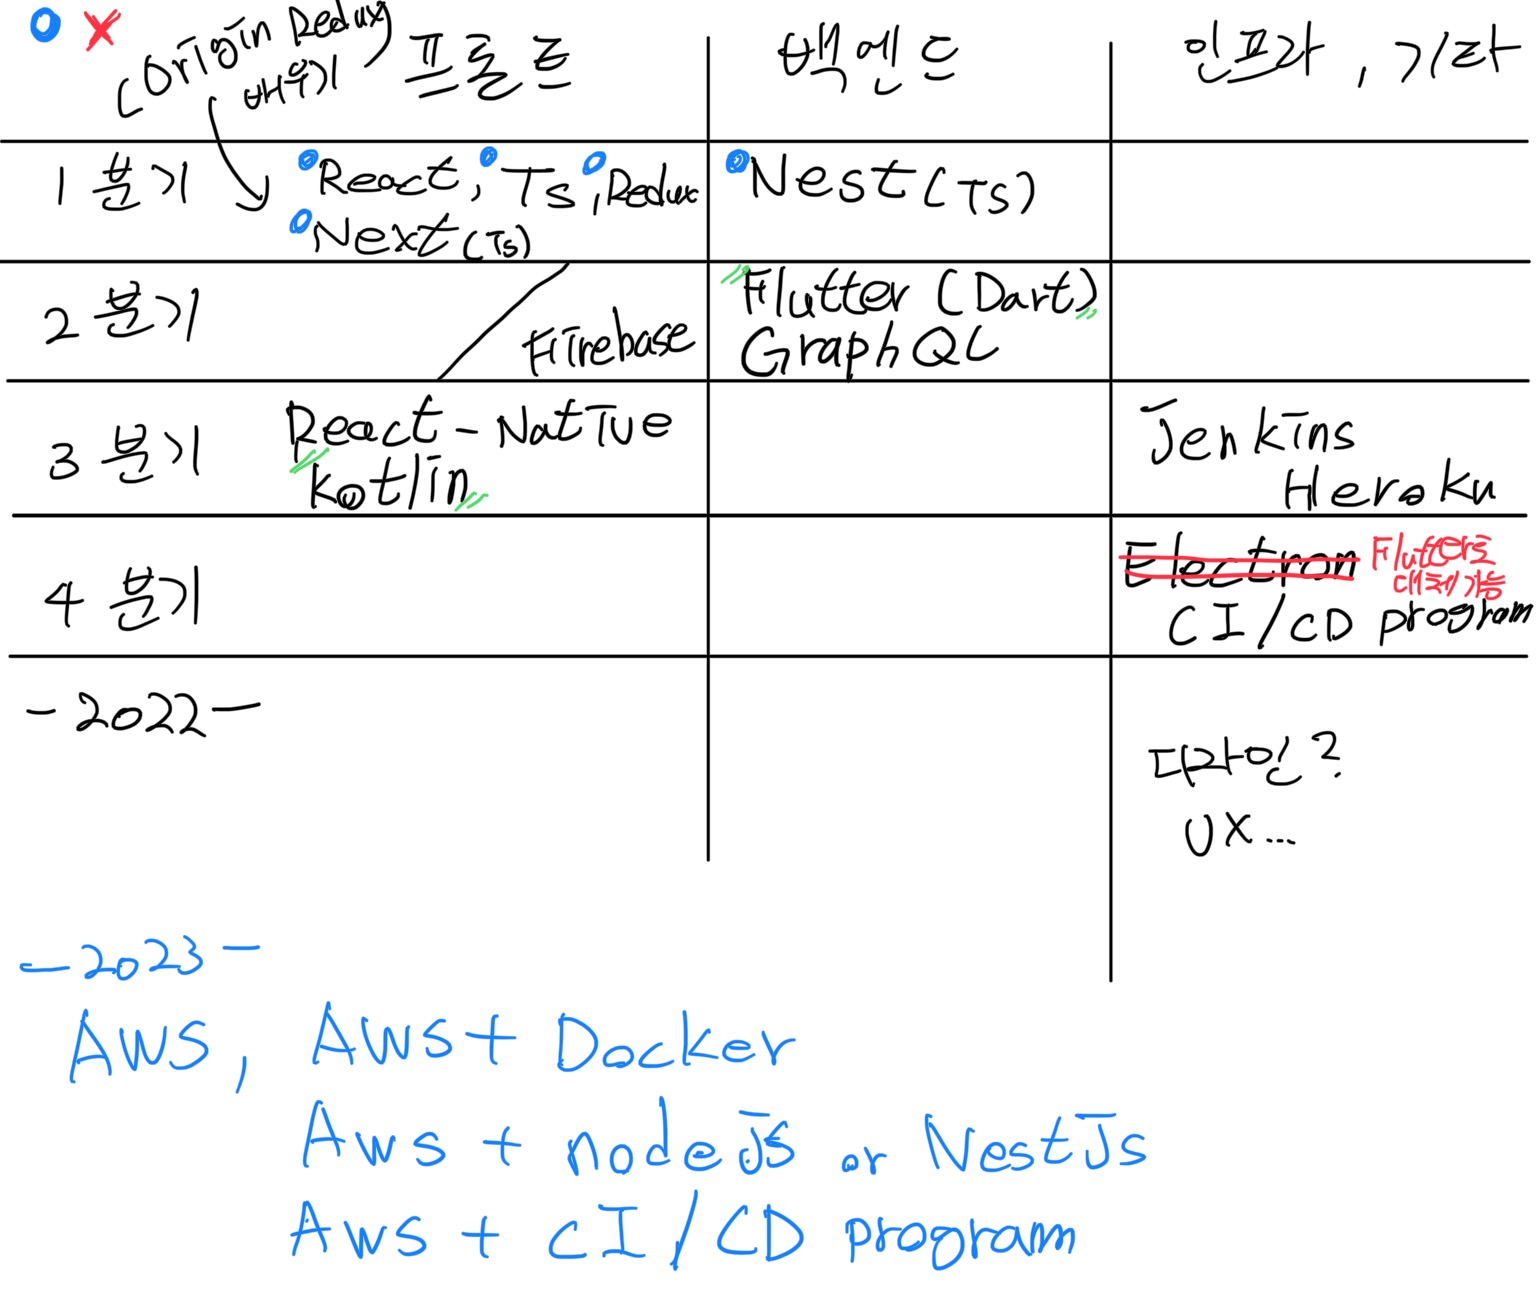 (Origin Redux
배우기)
프론트
백엔드
인프라, 기타
1 분기
React, Ts, Redux
Next(Ts)
Nest(Ts)
2 분기
Firebase
Flutter (Dart)
GraphQL
3 분기
React-Native
Kotlin
Jenkins
Heroku
4 분기
Electron
Flutter로
대체가능
CI/CD program
-2022-
디자인?
UX...
-2023-
AWS, Aws+ Docker
Aws + nodeJS or NestJs
Aws + CI/CD program